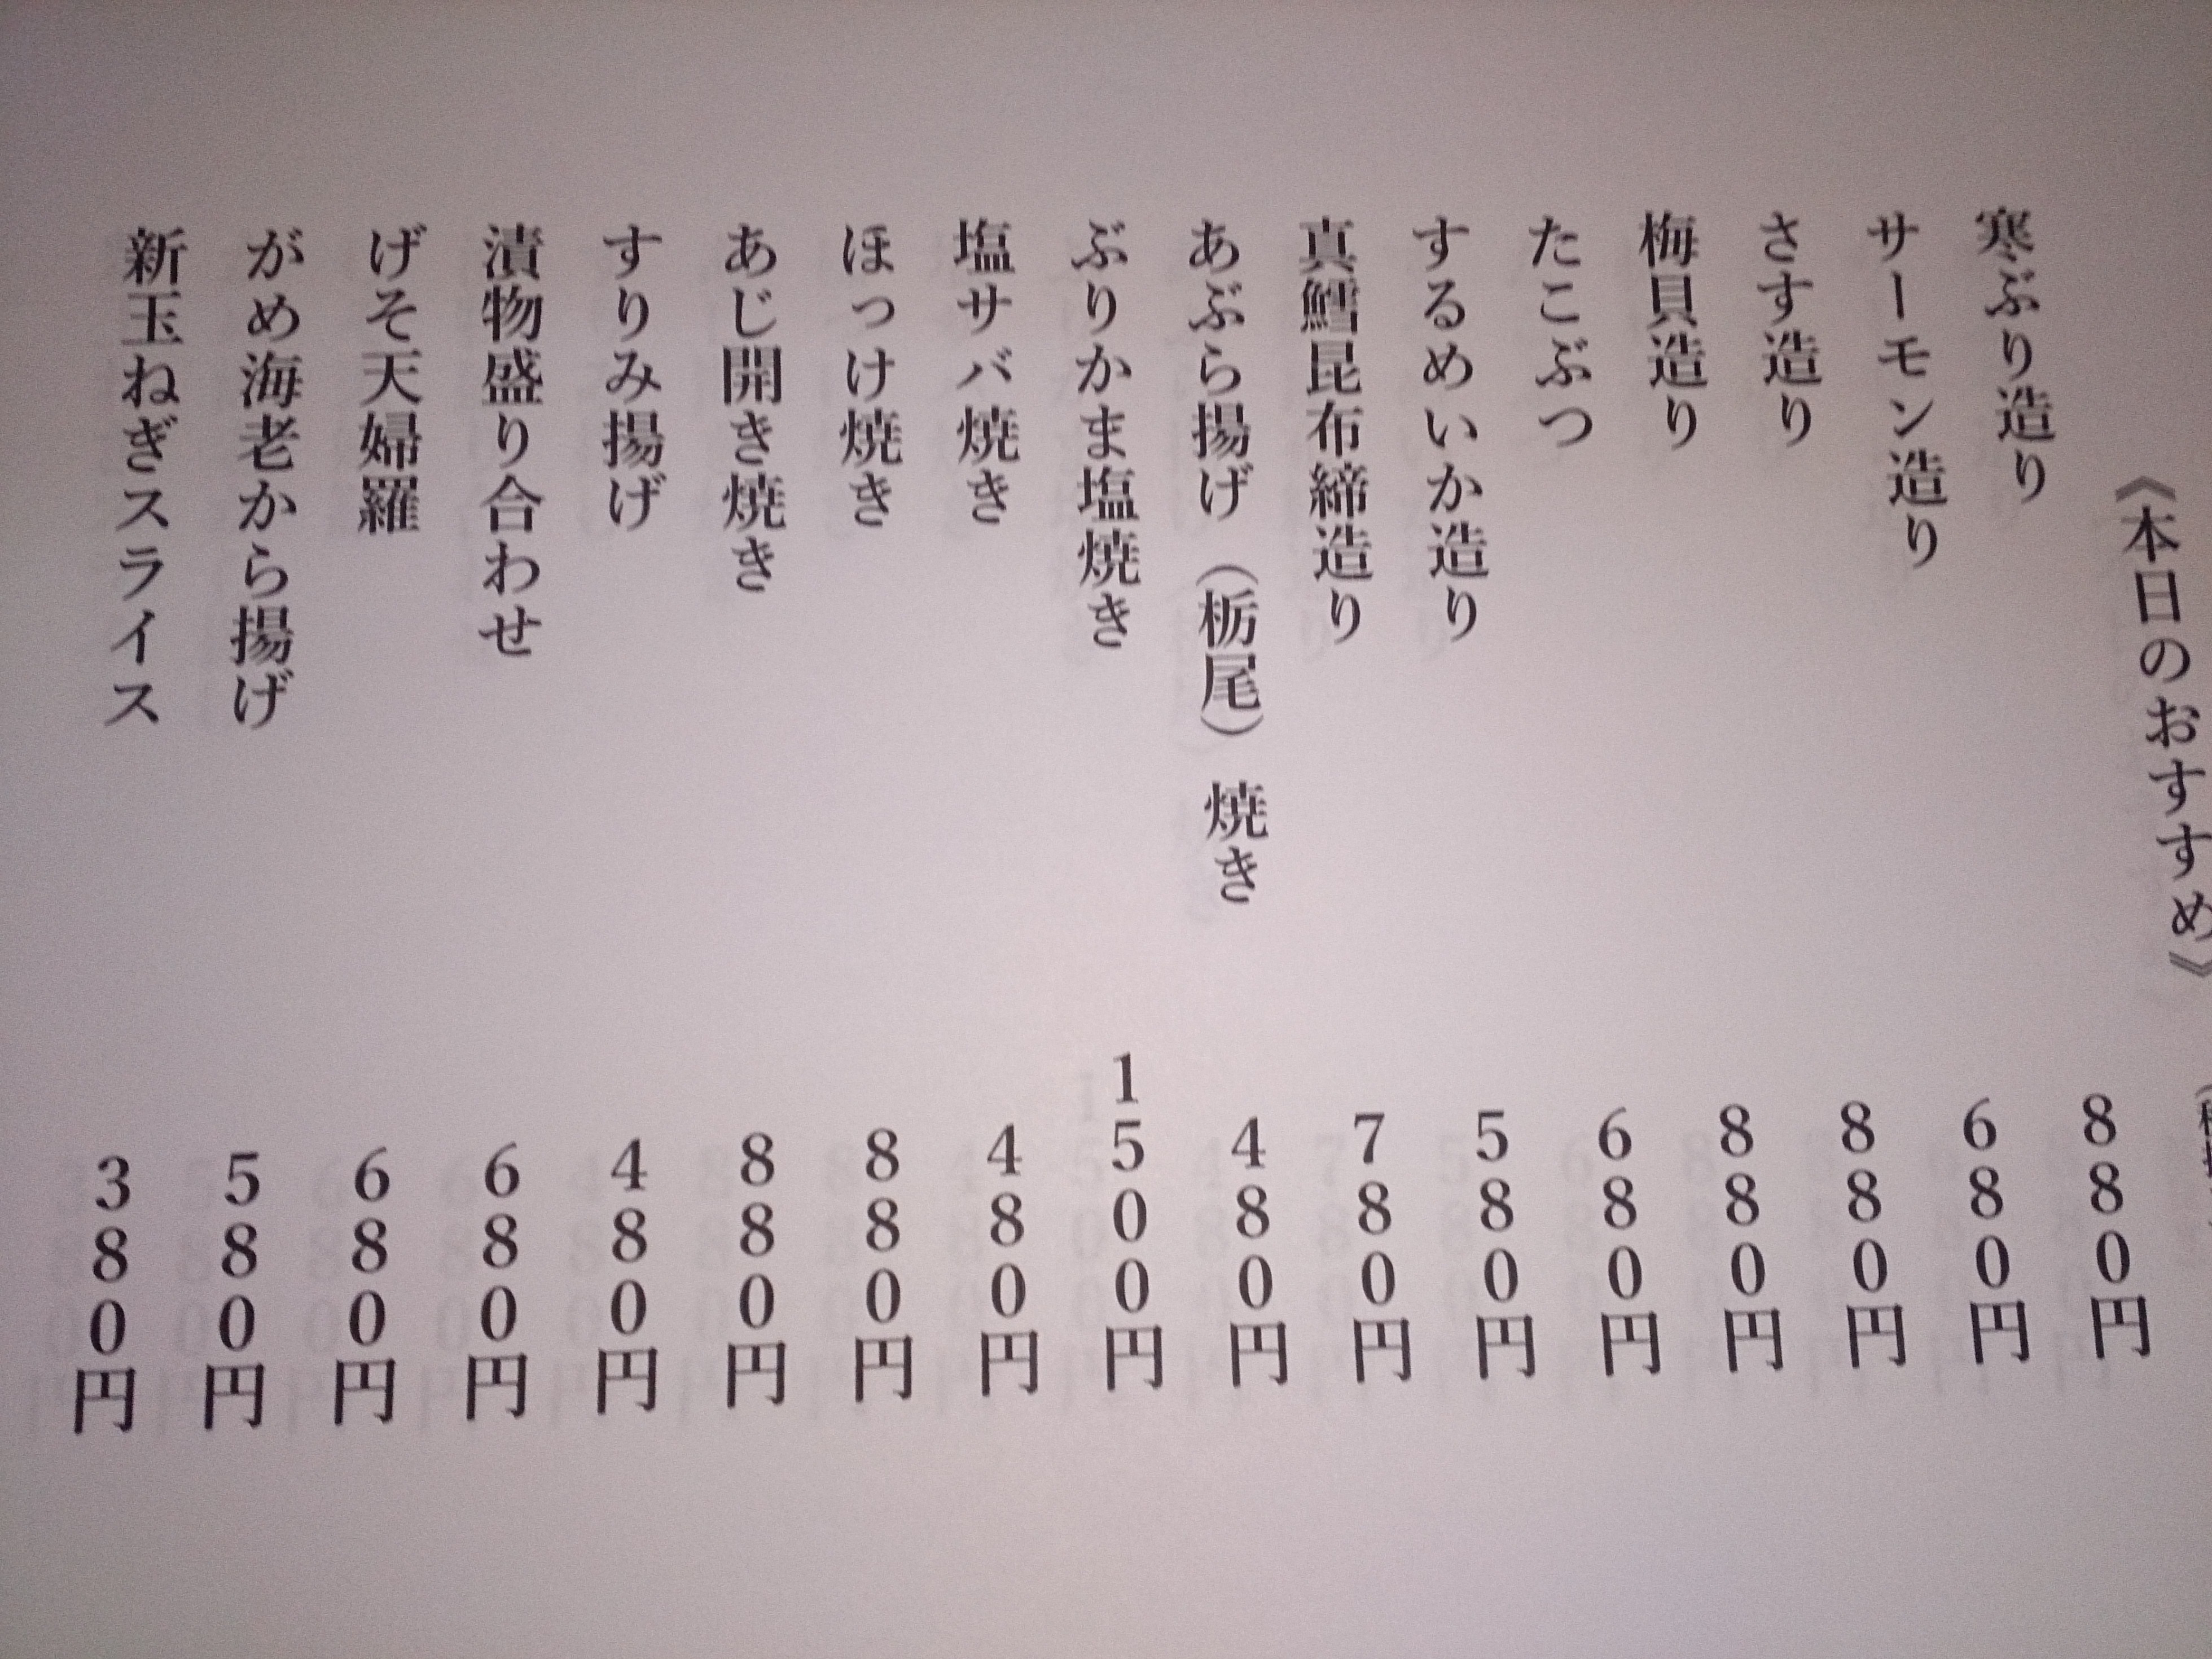 《本日のおすすめ》
寒ぶり造り 880円
サーモン造り 680円
さす造り 880円
梅貝造り 880円
たこぶつ 680円
するめいか造り 580円
真鱈昆布締造り 780円
あぶら揚げ(栃尾)焼き 480円
ぶりかま塩焼き 1500円
塩サバ焼き 480円
ほっけ焼き 880円
あじ開き焼き 880円
すりみ揚げ 480円
漬物盛り合わせ 680円
げそ天婦羅 680円
がめ海老から揚げ 580円
新玉ねぎスライス 380円